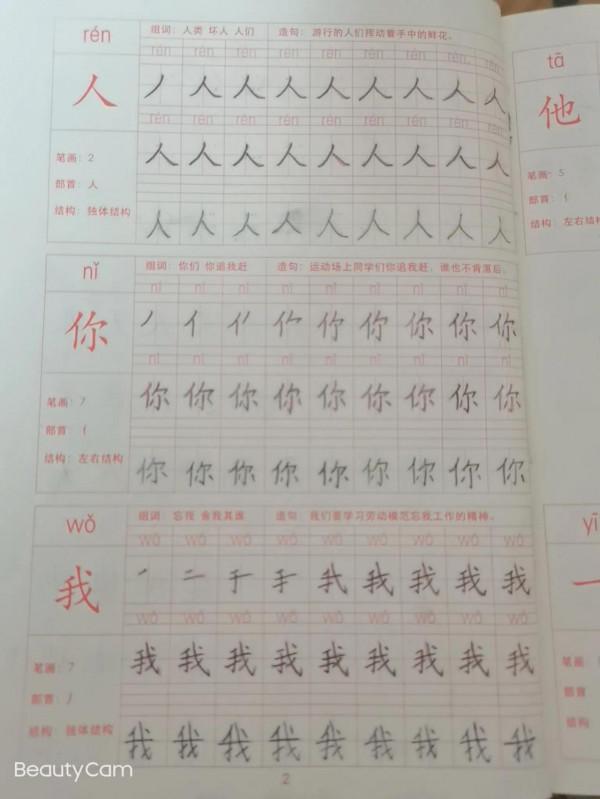 rén 组词：人类 坏人 人们 造句：游行的人们挥动着手中的鲜花。
rén rén rén rén rén rén rén rén rén
人 丿 人 人 人 人 人 人 人 人
rén rén rén rén rén rén rén rén rén
笔画：2 人 人 人 人 人 人 人 人 人
部首：人
结构：独体结构 人 人 人 人 人 人 人 人 人
nǐ 组词：你们 你追我赶 造句：运动场上同学们你追我赶，谁也不肯落后。
nǐ nǐ nǐ nǐ nǐ nǐ nǐ nǐ nǐ
你 丿 亻 你 你 你 你 你
nǐ nǐ nǐ nǐ nǐ nǐ nǐ nǐ nǐ
笔画：7 你 你 你 你 你 你 你 你 你
部首：亻
结构：左右结构 你 你 你 你 你 你 你 你 你
wǒ 组词：忘我 舍我其谁 造句：我们要学习劳动模范忘我工作的精神。
wǒ wǒ wǒ wǒ wǒ wǒ wǒ wǒ wǒ
我 二 手 我 我 我 我
wǒ wǒ wǒ wǒ wǒ wǒ wǒ wǒ wǒ
笔画：7 我 我 我 我 我 我 我 我 我
部首：丿
结构：独体结构 我 我 我 我 我 我 我 我 我
2
tā
他
笔画：5
部首：亻
结构：左右结构
yī
一
笔画：
部首
结构
BeautyCam